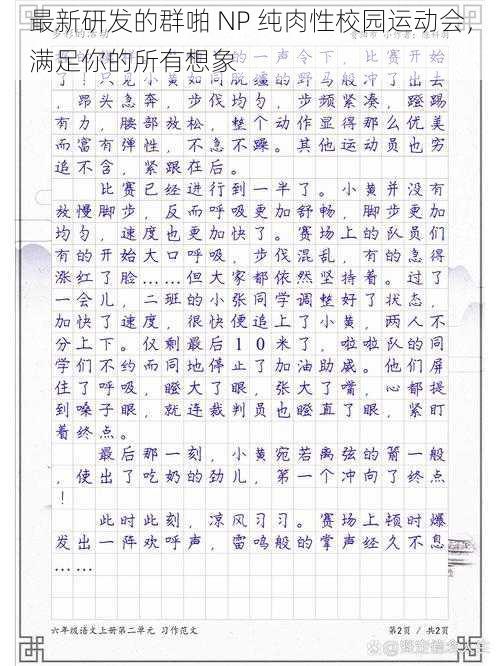 最新研发的群啪 NP 纯肉性校园运动会，
满足你的所有想象
的一声令下，比赛开始
了！只见小黄如同脱缰的野马般冲了出去
，昂头急奔，步伐均匀，步频紧凑，蹬踢
有力，腰部放松，整个动作显得那么优美
而富有弹性，不急不躁。其他运动员也穷
追不舍，紧跟在后。
比赛已经进行到一半了。小黄并没有
放慢脚步，反而呼吸更加舒畅，脚步更加
均匀，速度也更加快了。赛场上的队员们
有的开始大口呼吸，步伐混乱，有的急得
涨红了脸……但大家都依然坚持着。过了
一会儿，二班的小张同学调整好了状态，
加快了速度，很快便追上了小黄，两人不
分上下。仅剩最后10米了，啦啦队的同
学们不约而同地停止了加油助威。他们屏
住了呼吸，瞪大了眼，张大了嘴，心都提
到嗓子眼，就连裁判员也瞪直了眼，紧盯
着终点。
最后那一刻，小黄宛若离弦的箭一般
，使出了吃奶的劲儿，第一个冲向了终点
！
此时此刻，凉风习习。赛场上顿时爆
发出一阵欢呼声，雷鸣般的掌声经久不息
……
六年级语文上册第二单元 习作范文
第2页 / 共2页